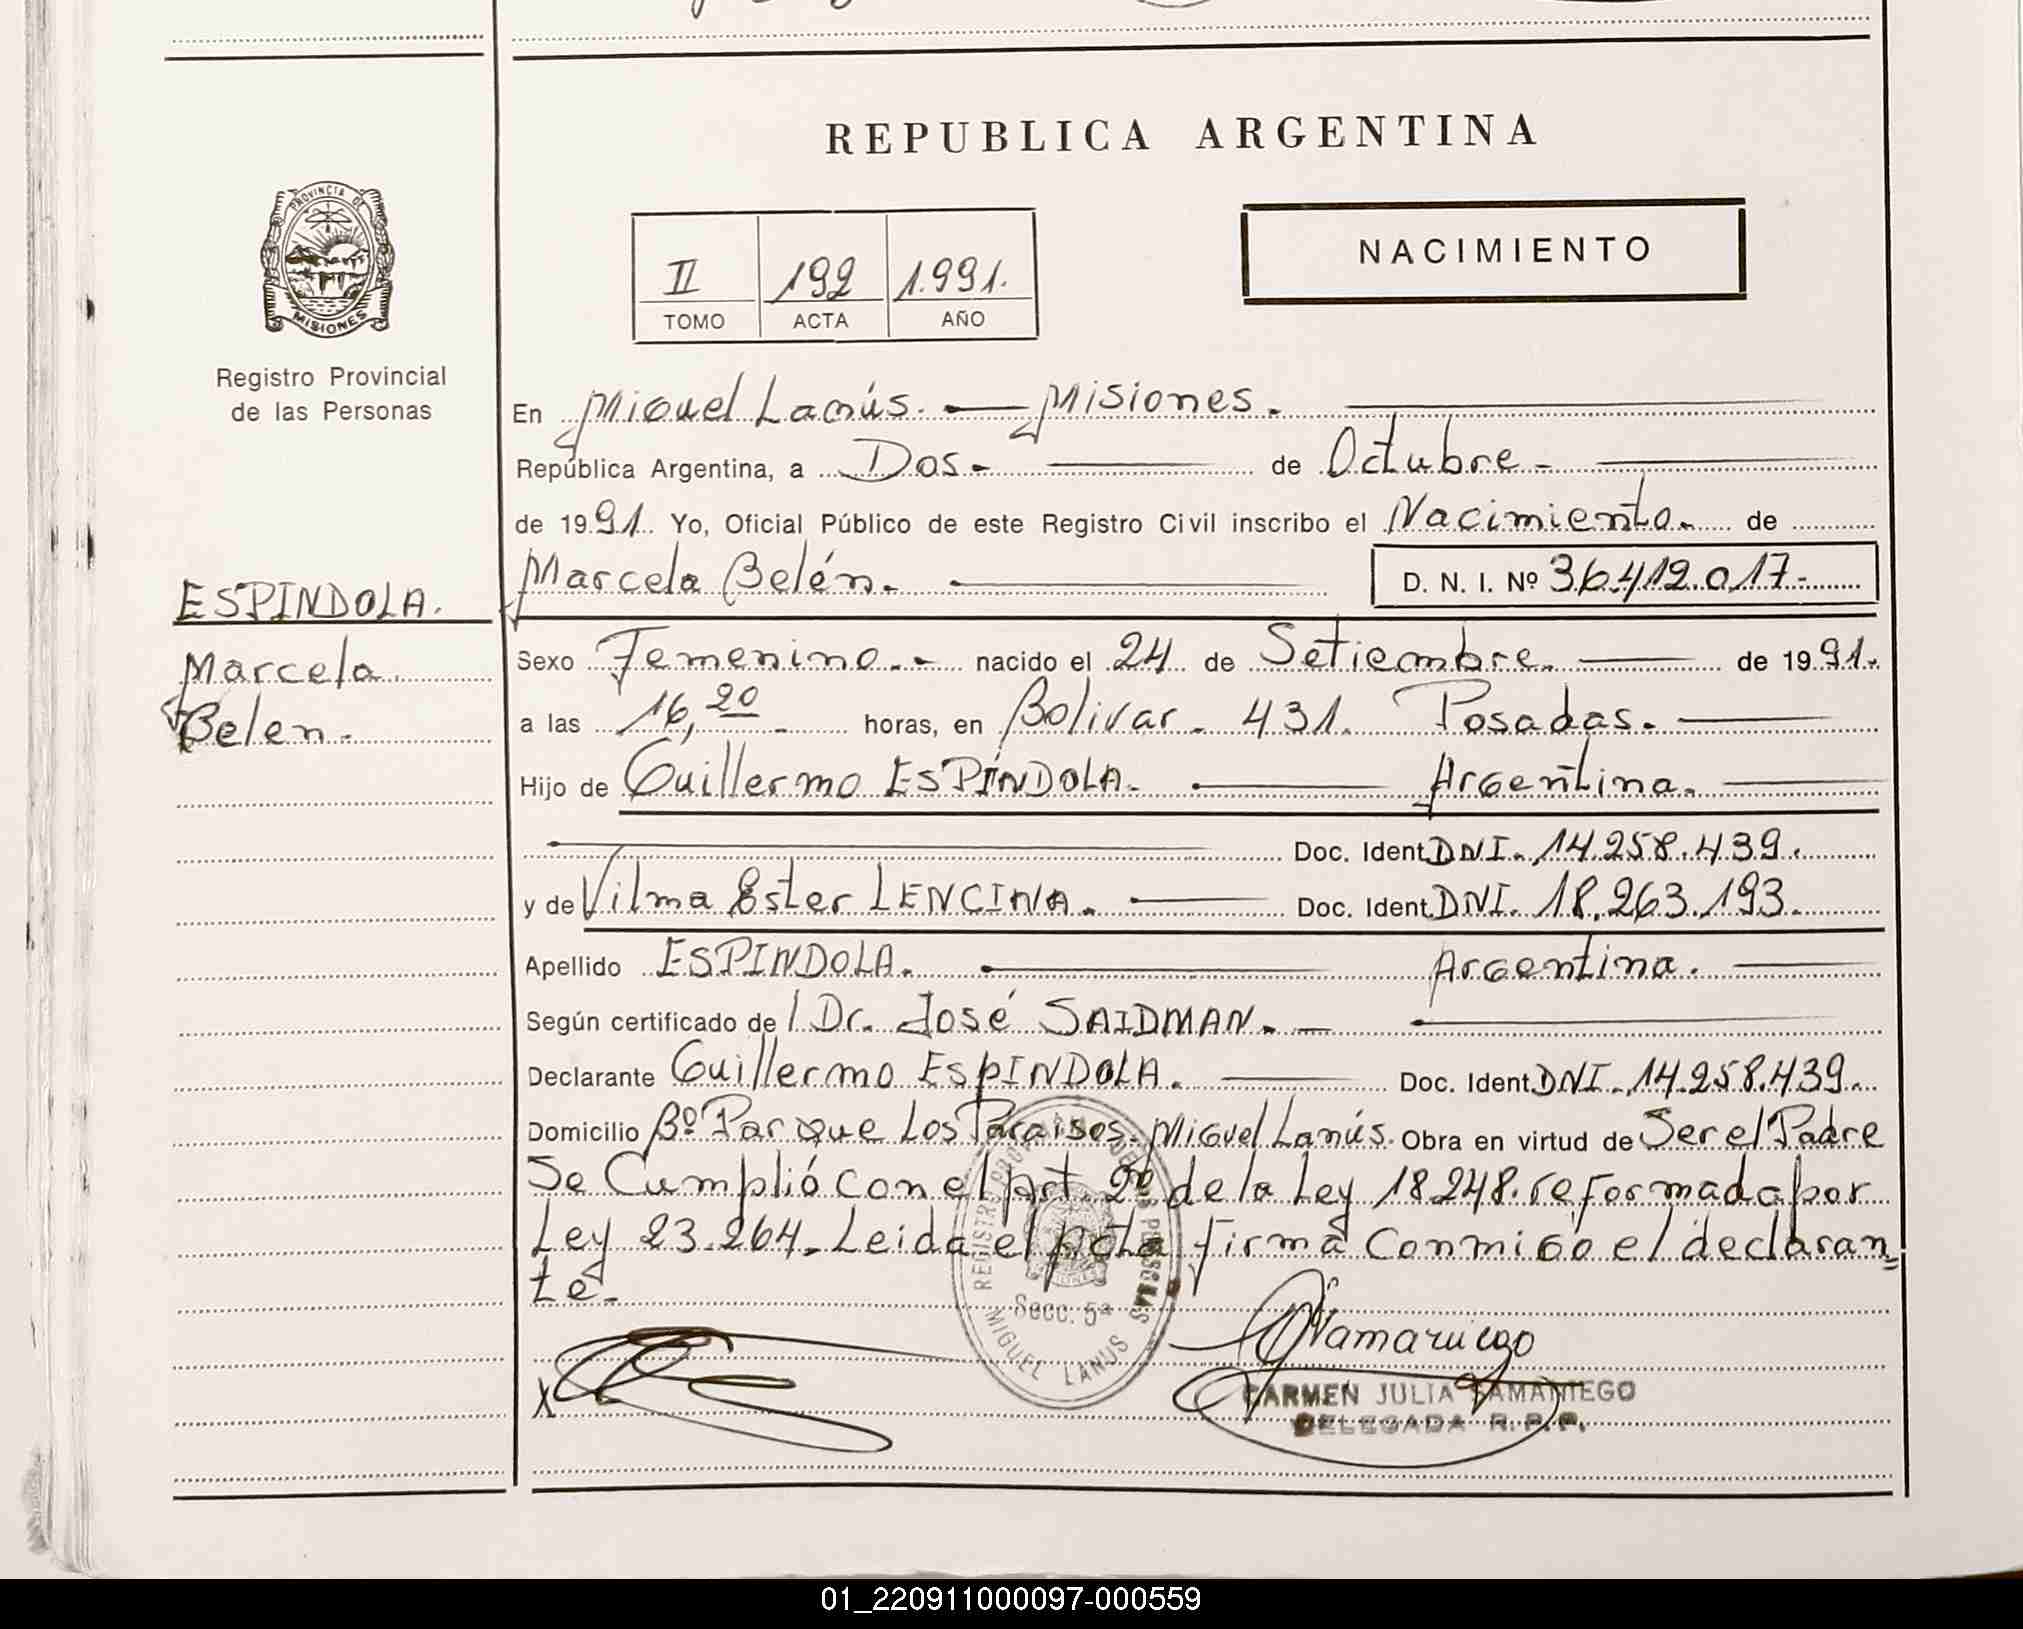 REPUBLICA ARGENTINA
PROVINCIA DE
MISIONES
Registro Provincial
de las Personas
NACIMIENTO
II 192 1.991.
TOMO ACTA AÑO
En Miguel Lanús. Misiones.
República Argentina, a Dos. de Octubre.
de 1991. Yo, Oficial Público de este Registro Civil inscribo el Nacimiento. de
Marcela Belén. D. N. I. Nº 36.412.017.
ESPINDOLA.
Marcela
Belen.
Sexo Femenino. nacido el 24 de Setiembre. de 1991.
a las 16,20 horas, en Bolivar. 431. Posadas.
Hijo de Guillermo ESPÍNDOLA. Argentina.
Doc. Ident. DNI. 14.258.439.
y de Vilma Ester LENCINA. Doc. Ident. DNI. 18.263.193.
Apellido ESPINDOLA. Argentina.
Según certificado de / Dr. José SAIDMAN.
Declarante Guillermo ESPINDOLA. Doc. Ident. DNI. 14.258.439.
Domicilio Bº Parque Los Paraisos. Miguel Lanús. Obra en virtud de Ser el Padre
Se Cumplió con el Art. 2º de la Ley 18248. reformada por
Ley 23.264. Leida el Acta firma conmigo el declaran=
te.
REGISTRO PROVINCIAL DE LAS PERSONAS
Secc. 5ª
MIGUEL LANUS
X
CARMEN JULIA SAMANIEGO
DELEGADA R. P. P.
01_220911000097-000559